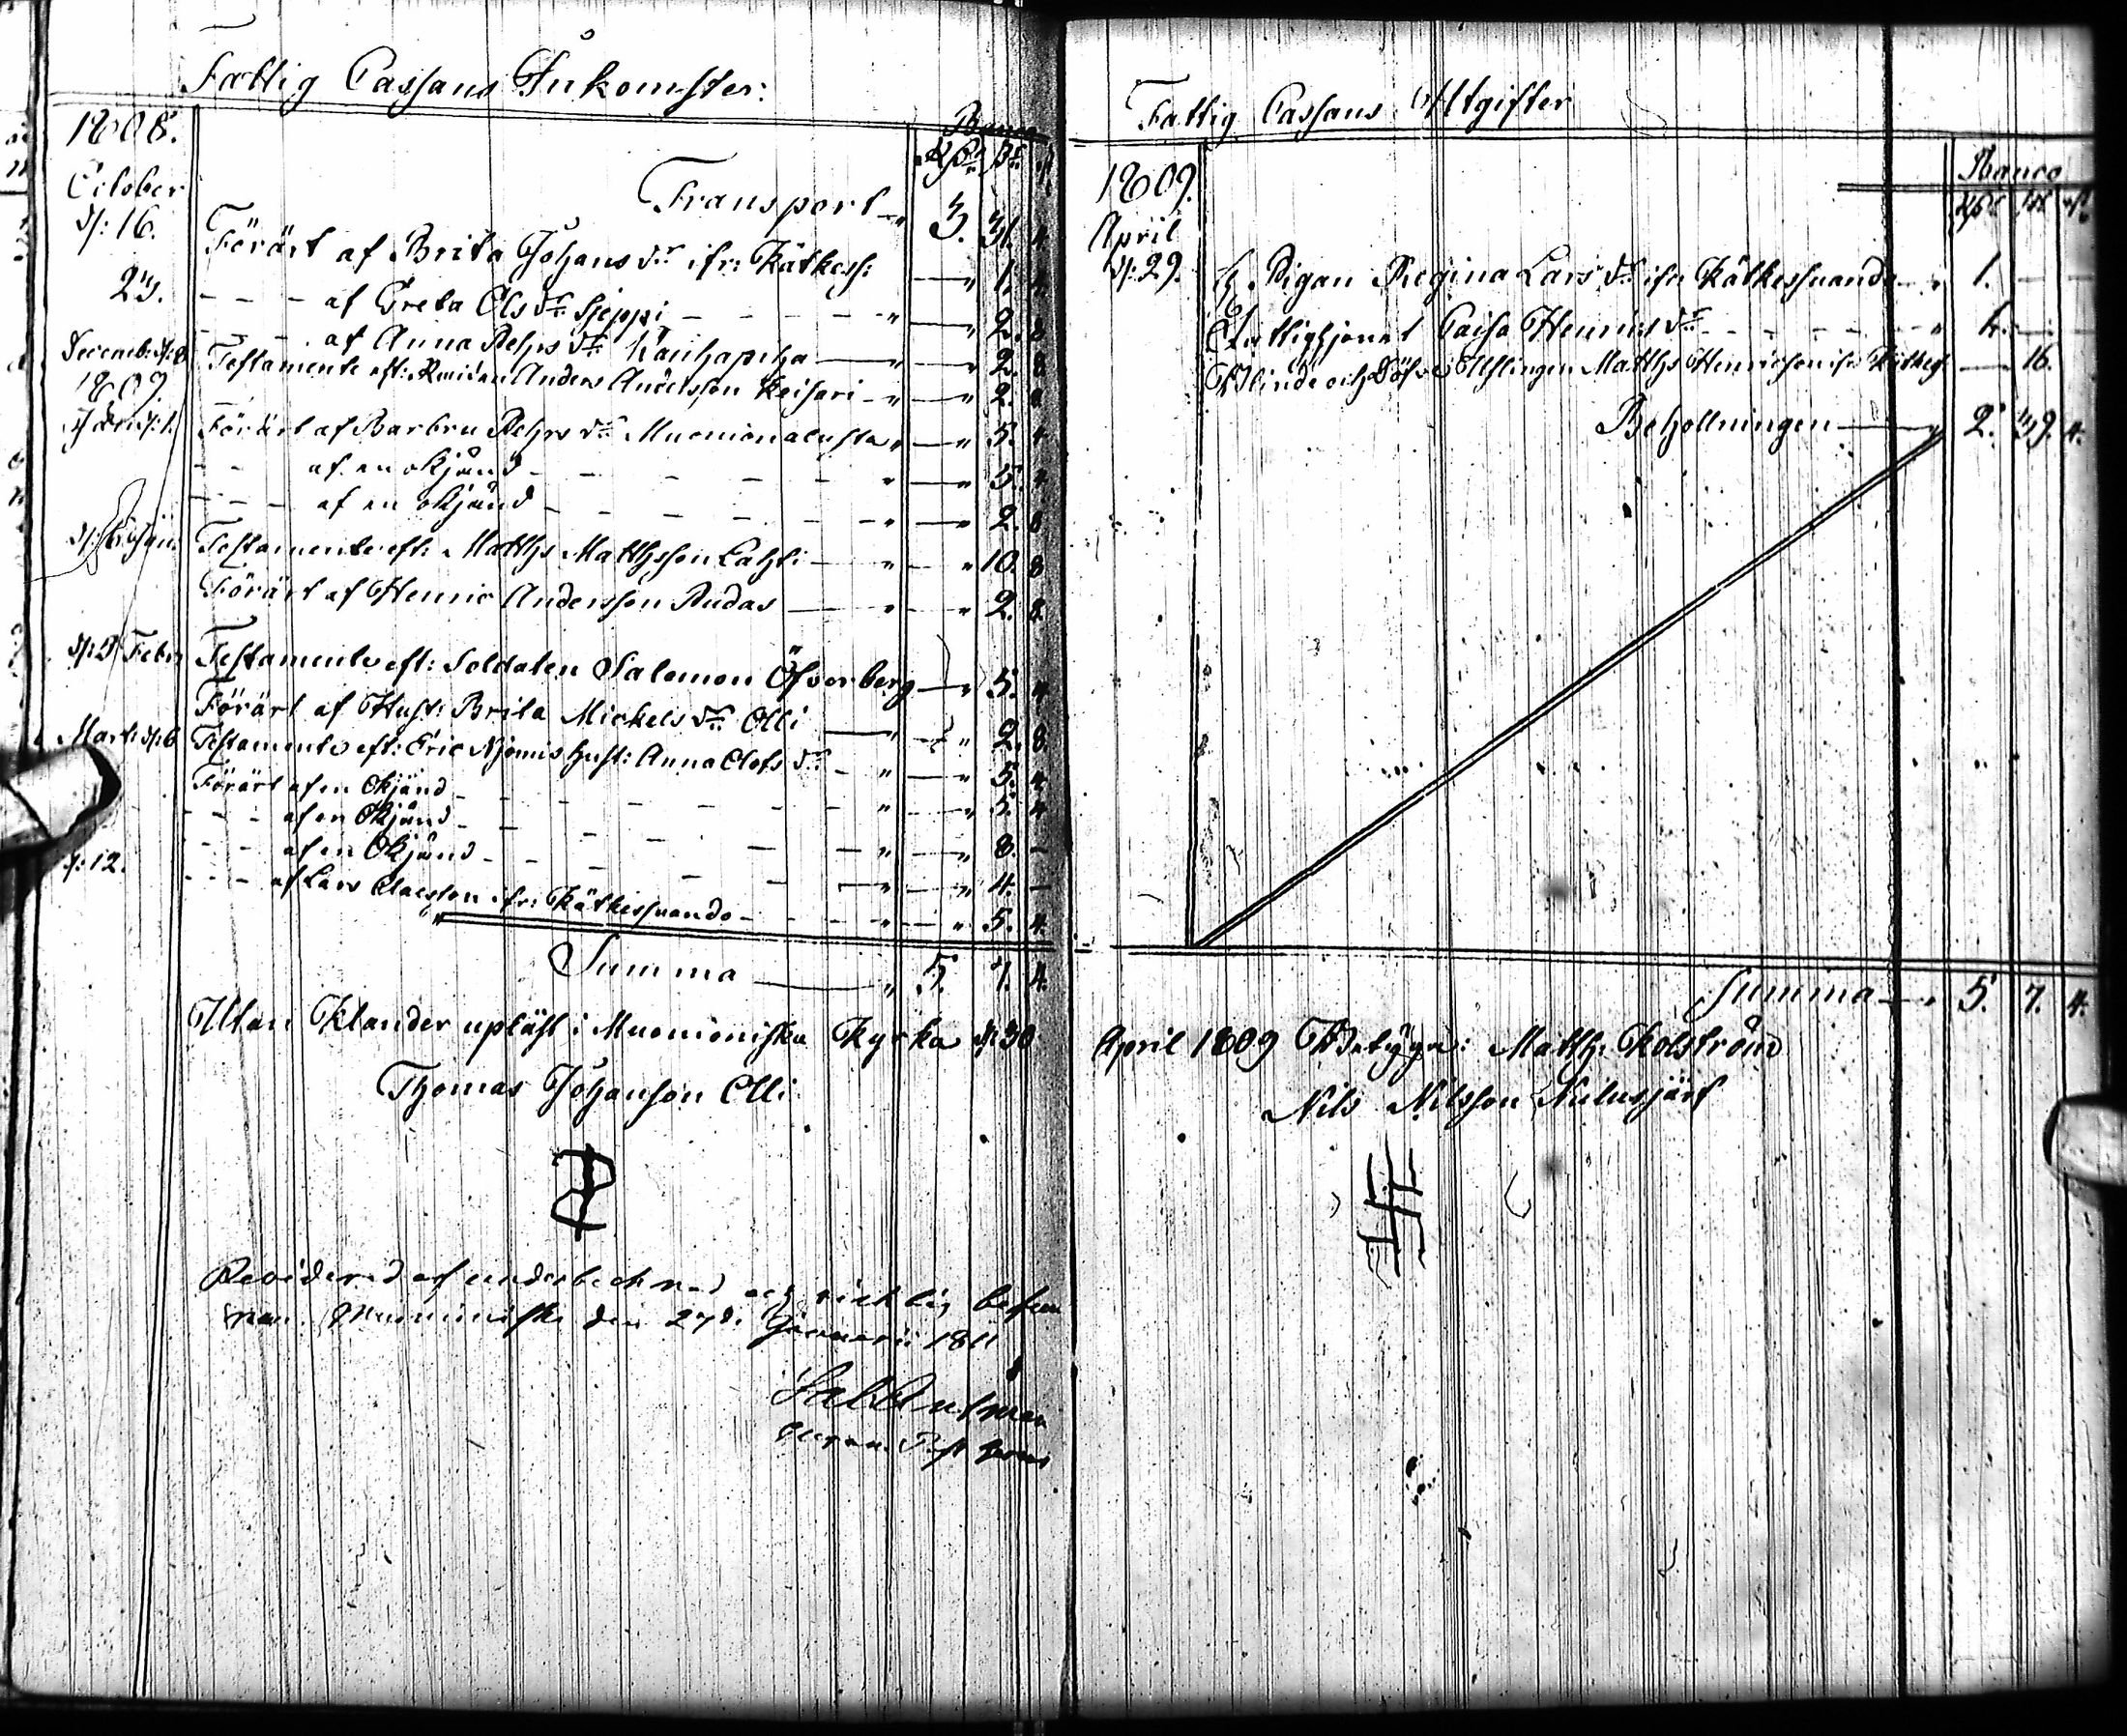 Fattig Cassans Inkomster:
1808.
Banco
Rdr ß r
October
Transport 3. 31. 4.
d: 16. Förärt af Brita Johans dr ifr: Kätkess: 1. 4.
23. - - - af Greta Ols dr Sjeppi 2. 8
- - - af Anna Pehrs dr Kauhapiha 2. 8
Decemb: d: 8 Testamente eft: Anders Andersson Keisari 2. 8
1809.
Jan: d: 1. Förärt af Barbru Pehrs dr Muonionalusta 5. 4
- - af en okjänd 5. 4
- - - af en okjänd 2. 8
Testamente eft: Matths Matthsson Lahti 10. 8
Förärt af Henric Andersson Rudas 2. 8.
d: 2 Febr Testamente eft: Soldaten Salomon Öfverberg 5. 4
Förärt af Hust: Brita Mickels dr Olli 2. 8
Mart: d: 6 Testamente eft: Eric Njomis Hust: Anna Olofs dr 5. 4
Förärt af en Okjänd 5. 4
- - - af en Okjänd 8. -
- - - af en Okjänd 4. -
d: 12. - - - af Lars Claesson ifr: Kätkessuando 5. 4.
Summa 5. 7. 4.
Utan Klander upläst i Muonioniska Kyrka d: 30
Thomas Johanson Olli
Reviderad af undertecknad och richtig befun
nen. Muonioniska den 27de Januarii 1811
Fattig Cassans Utgifter
1809.
Banco
Rdr ß r
April
d: 29. Pigan Regina Lars dr ifr Kätkessuando 1. - -
Fattighjonet Caisa Henrics dr 1. - -
Blinde och Döfve Ynglingen Matths Henricson ifr Kätkes - 16.
Behollningen 2. 39. 4.
Summa 5. 7. 4.
April 1809 Betygar: Matth: Kolström
Nils Nilsson Nulusjärf